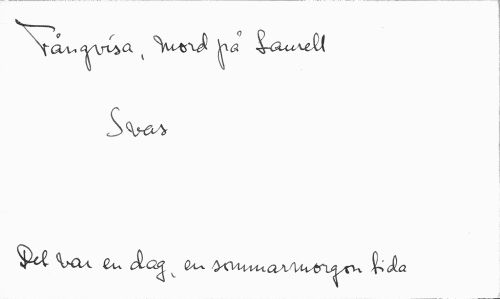 Fångvisa, Mord på Laurell
Svas
Det var en dag, en sommarmorgon tida